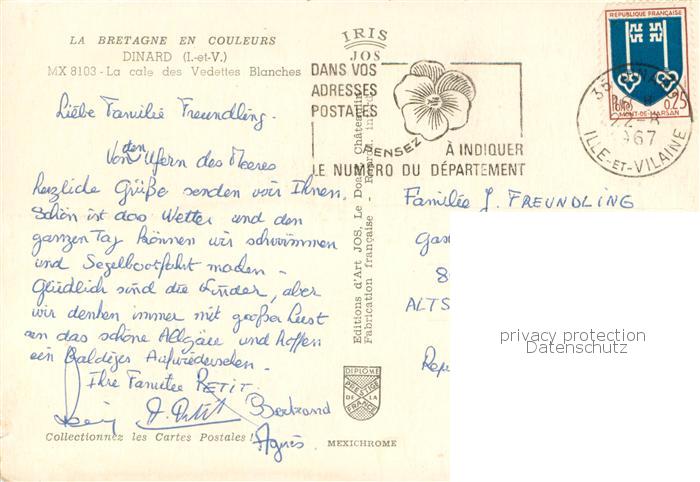 LA BRETAGNE EN COULEURS
DINARD (I.-et-V.)
MX 8103 - La cale des Vedettes Blanches
IRIS
JOS
DANS VOS
ADRESSES
POSTALES
PENSEZ
À INDIQUER
LE NUMÉRO DU DÉPARTEMENT
REPUBLIQUE FRANÇAISE
Postes
0,25
MONT-DE-MARSAN
35 DINARD
22-8
1967
ILLE-ET-VILAINE
Liebe Familie Freundling.
Von den Ufern des Meeres
herzliche Grüße senden wir Ihnen.
Schön ist das Wetter und den
ganzen Tag können wir schwimmen
und Segelbootfahrt machen -
Glücklich sind die Kinder, aber
wir denken immer mit großer Lust
an das schöne Allgäu und hoffen
ein baldiges Aufwiedersehen.
Ihre Familie PETIT.
Bertrand
Agnès
Editions d'Art JOS, Le Doaré, Châteaulin
Fabrication française -
Familie J. FREUNDLING
Gas
8
ALTS
Rep
DIPLOME
PRESTIGE
DE LA
FRANCE
Collectionnez les Cartes Postales !
MEXICHROME
privacy protection
Datenschutz